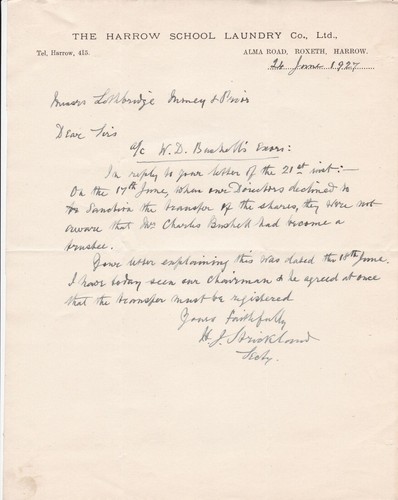 THE HARROW SCHOOL LAUNDRY Co., Ltd.,
Tel, Harrow, 415.
ALMA ROAD, ROXETH, HARROW.
24 June 1927
Messrs Lethbridge Money & Prior
Dear Sirs
a/c W. D. Bushell's Exors:
In reply to your letter of the 21st inst:—
On the 17th June, when our Directors declined to
to Sanction the transfer of the shares, they were not
aware that Mr Charles Bushell had become a
trustee.
Your letter explaining this was dated the 18th June.
I have today seen our Chairman & he agreed at once
that the transfer must be registered
Yours faithfully
H. J. Strickland
Secty.